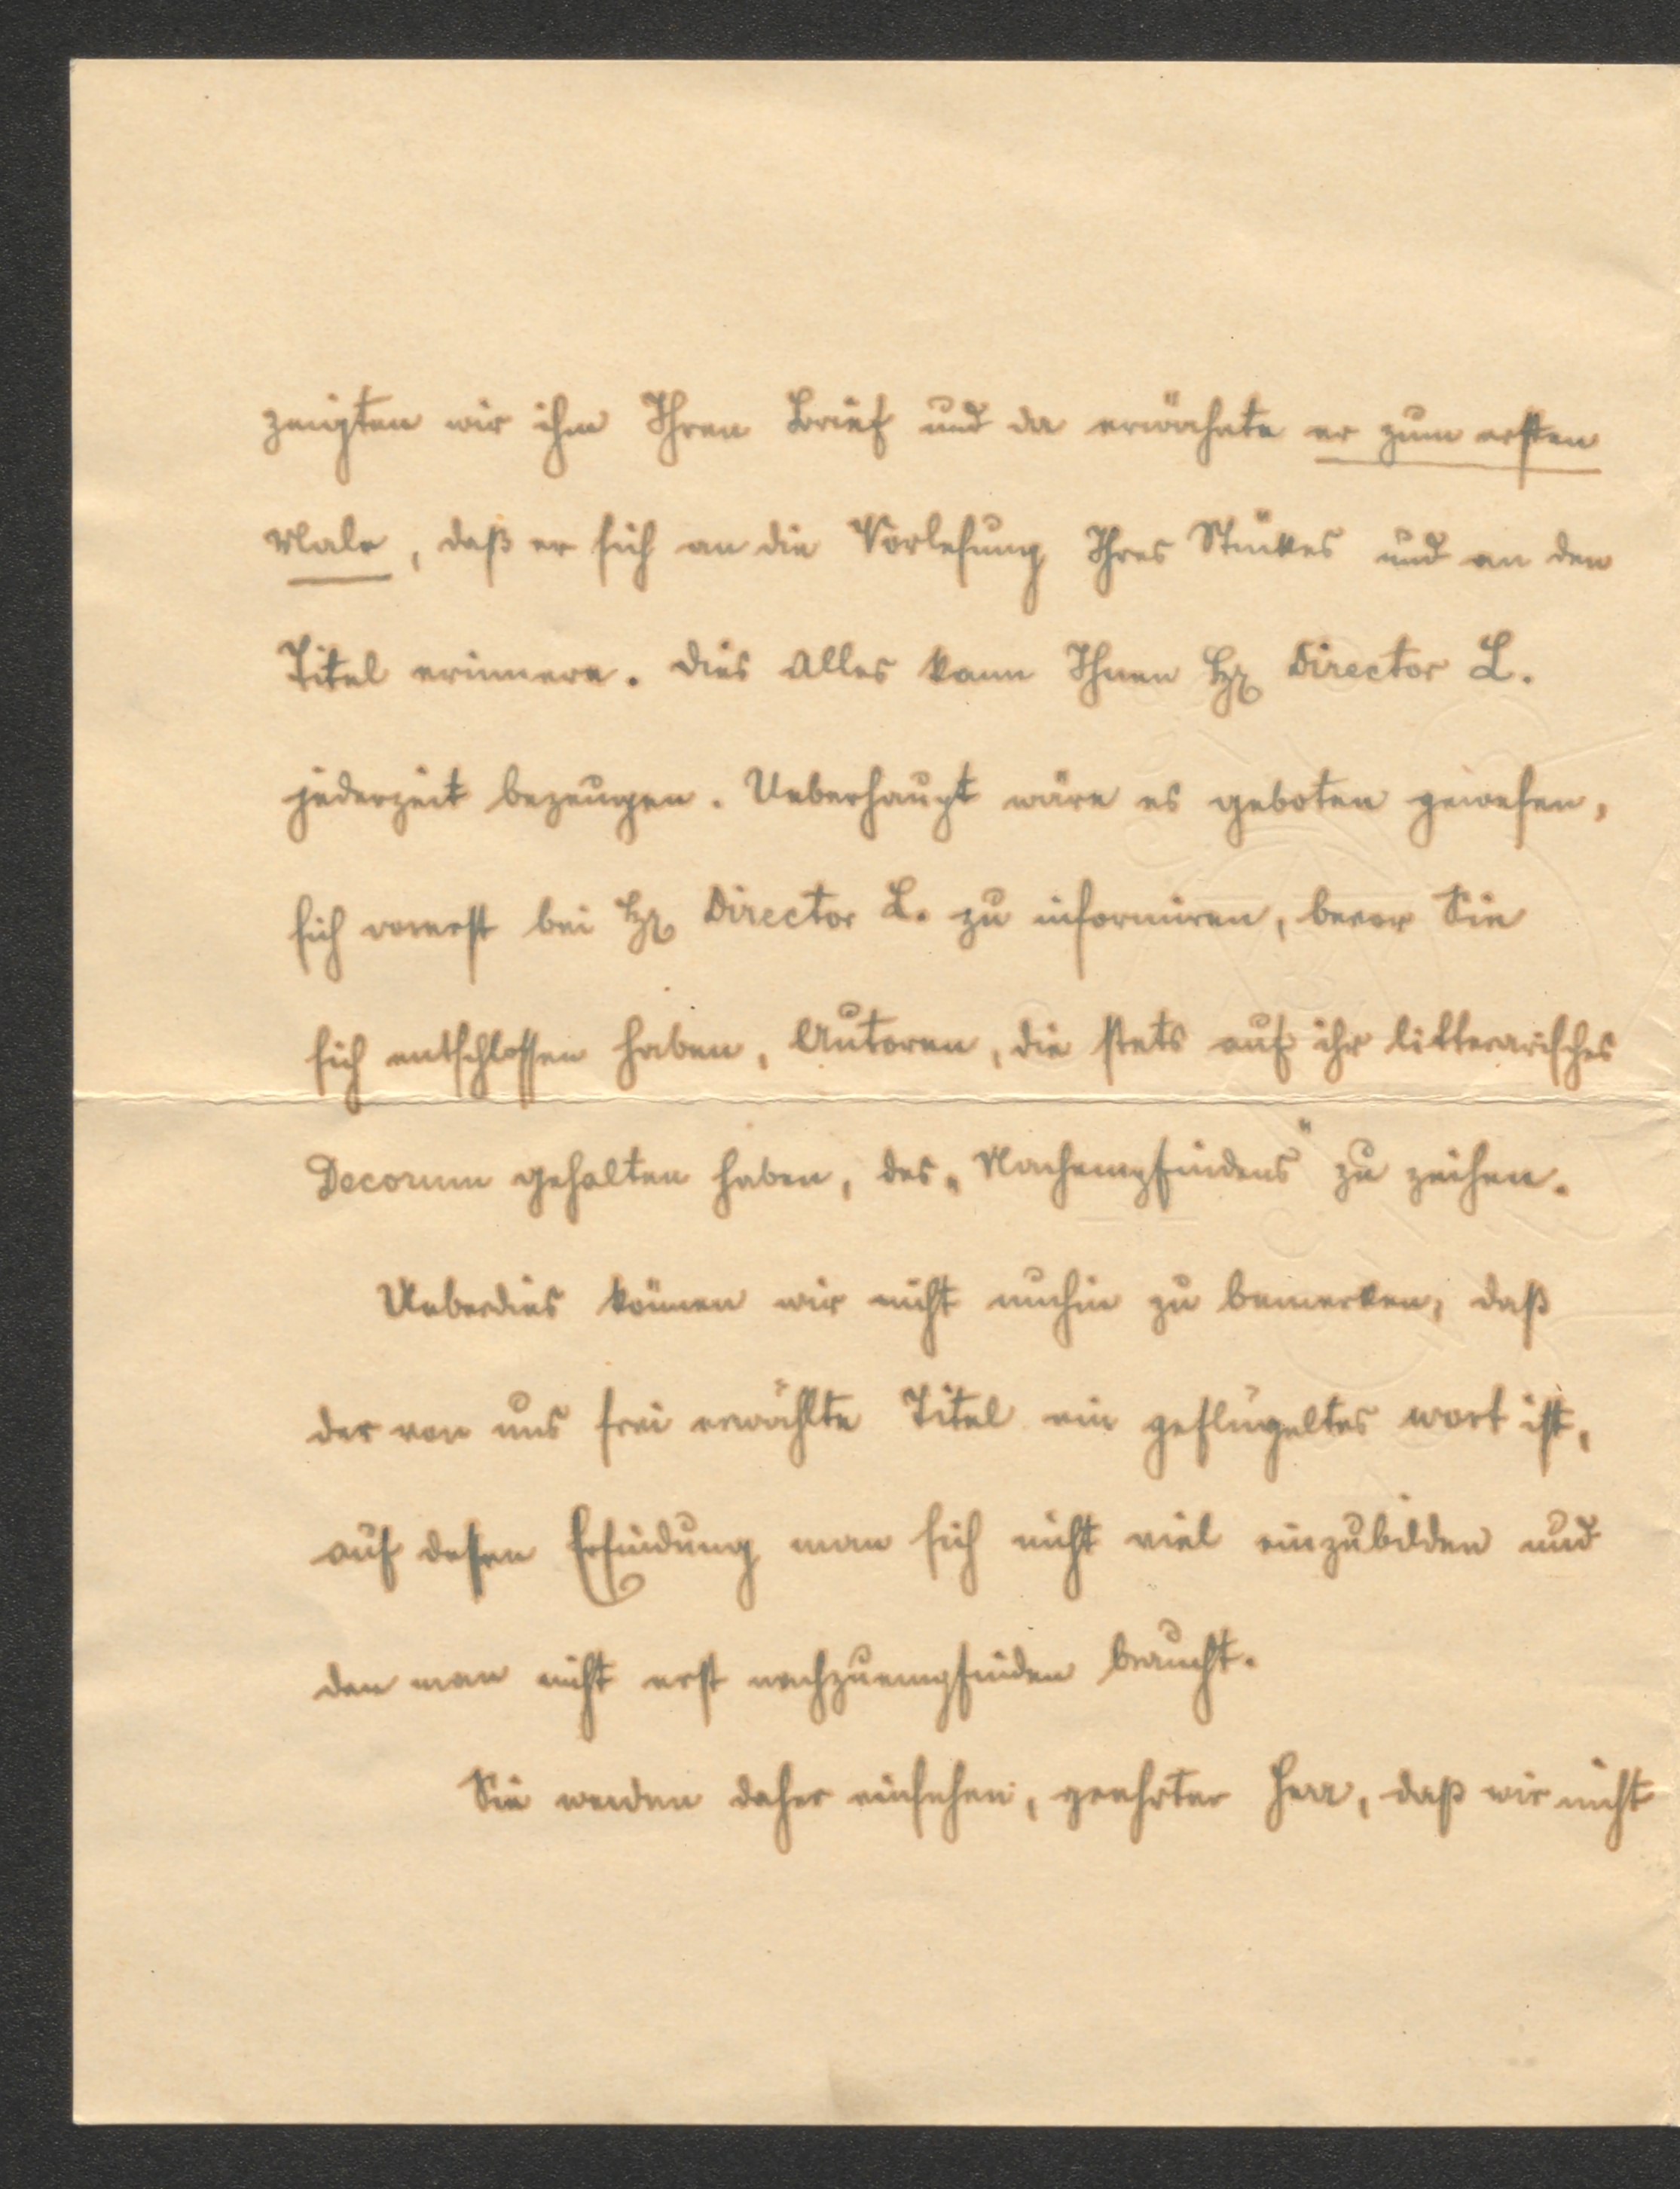 zeigten wir ihm Ihren Brief und da erwähnte er zum ersten
Male, daß er sich an die Vorlesung Ihres Stückes und an den
Titel erinnere. Dies Alles kann Ihnen Hr Director L.
jederzeit bezeugen. Ueberhaupt wäre es geboten gewesen,
sich vorerst bei Hr Director L. zu informiren, bevor Sie
sich entschlossen haben, Autoren, die stets auf ihr litterarisches
Decorum gehalten haben, des „Nachempfindens" zu zeihen.
Ueberdies können wir nicht umhin zu bemerken, daß
der von uns frei erwählte Titel ein geflügeltes Wort ist,
auf dessen Erfindung man sich nicht viel einzubilden und
den man nicht erst nachzuempfinden braucht.
Sie werden daher einsehen, geehrter Herr, daß wir nicht